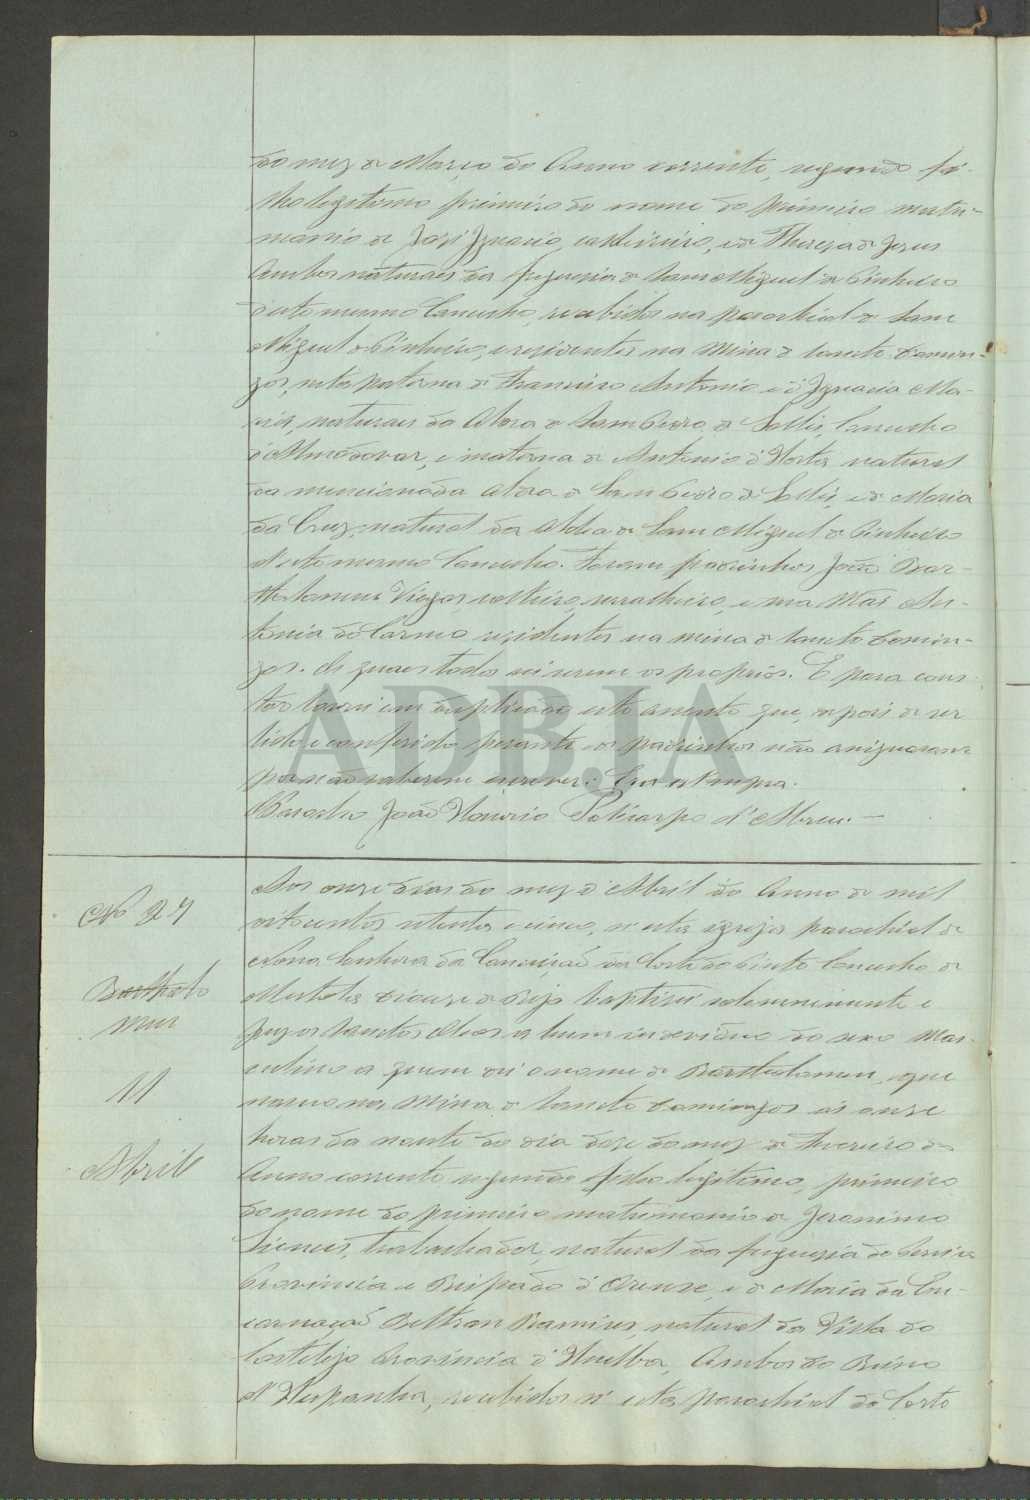 do mez de Março do Anno corrente, segundo fi-
lho legitimo primeiro do nome do primeiro matri-
monio de José Ignacio, e de Thereza de Jesus
Ambos naturaes da freguezia de Sam Miguel de Pinheiro
d'este mesmo Concelho, recebidos na parochial de Sam
Miguel de Pinheiro, e residentes na Mina de Sancto Domin-
gos, neto paterno de Francisco Antonio e d'Ignacia Ma-
ria, naturaes da Aldea de Sam Pedro de Sollis, Concelho
d'Almodovar, e materno de Antonio d'Horta natural
da mencionada Aldea de Sam Pedro de Sollis, e de Maria
da Cruz, natural da Aldea de Sam Miguel de Pinheiro
d'este mesmo Concelho. Foram padrinhos João Bar-
tholomeu Viegas solteiro, serralheiro, e sua Mai An-
tonia do Carmo residentes na mina de Sancto Domin-
gos. Os quaes todos sei serem os proprios. E para cons-
tar lavrei em duplicado este assento que, depois de ser
lido e conferido perante os padrinhos não assignaram
por não saberem escrever. Era ut supra.
O Parocho João Honorio Policarpo d'Abreu. —
No 27
Bartholo
meu
11
Abril
Aos onze dias do mez d'Abril do Anno de mil
oitocentos setenta e cinco, n'esta igreja parochial de
Nossa Senhora da Conceição da Corte do Pinto Concelho de
Mertola Diocese de Beja baptisei solemnemente e
puz os Sanctos Oleos a hum individuo do sexo Mas-
culino a quem dei o nome de Bartholomeu, que
nasceo na Mina de Sancto Domingos ás onze
horas da noute do dia doze do mez de Fevereiro do
Anno corrente segundo filho legitimo, primeiro
do nome do primeiro matrimonio de Jeronimo
trabalhador, natural da freguezia de
Provincia e Bispado d'Orense, e de Maria da En-
carnação Beltran Ramires, natural da Villa do
Castilejo Provincia d'Huelba, Ambos do Reino
d'Hespanha, recebidos n'esta parochial da Corte